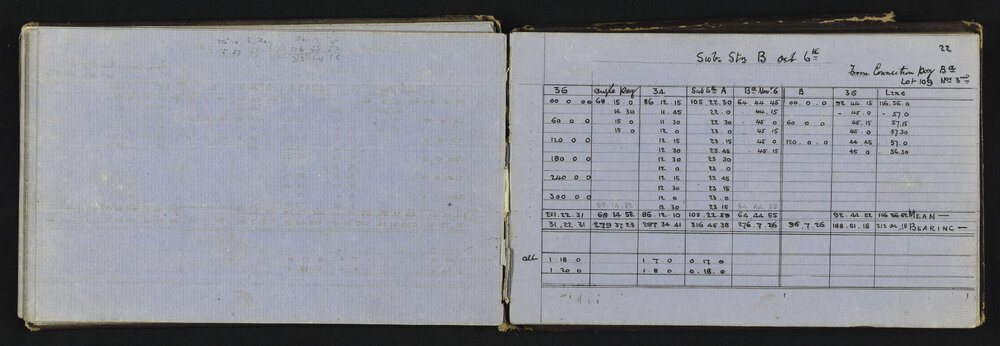 22
Sub. Stn B oct 6th
From Connection peg Ba
Lot 109 Nov 3rd
36 angle peg 34 Sub Stn A Ba Nov. 6 B 36 Line
00 0 00 69 15 0 86 12 15 105 22 30 64 44 45 00 . 0 . 0 92 44 15 116 . 56 . 0
14 30 11 . 45 22 0 44 . 15 - 45 . 0 - 57 0
60 0 0 15 0 11 30 22 30 - 45 0 60 0 0 45 . 15 57.15
15 0 12 0 23 0 45 15 45 . 0 57.30
120 0 0 12 15 23 15 - 45 0 120 . 0 . 0 44 45 57.0
12 30 23 45 45 . 15 45 0 56.30
180 0 0 12 30 23 30
12 0 23 . 0
240 0 0 12 15 22 45
12 30 23 15
300 0 0 12 0 23 0
69 14 52 12 30 23 15 64 44 55
211 . 22 . 31 69 14 52 86 . 12 . 10 105 . 22 . 59 64 44 55 92 . 44 . 52 116 56 52 MEAN —
31 . 22 . 31 279 37 23 297 . 34 . 41 316 45 38 276 . 7 . 26 96 . 7 . 26 188 . 51 . 18 213 . 04 . 18 BEARING —
alt 1 18 0 1 . 7 . 0 0 17 . 0
1 . 20 0 1 . 8 0 0 . 18 . 0